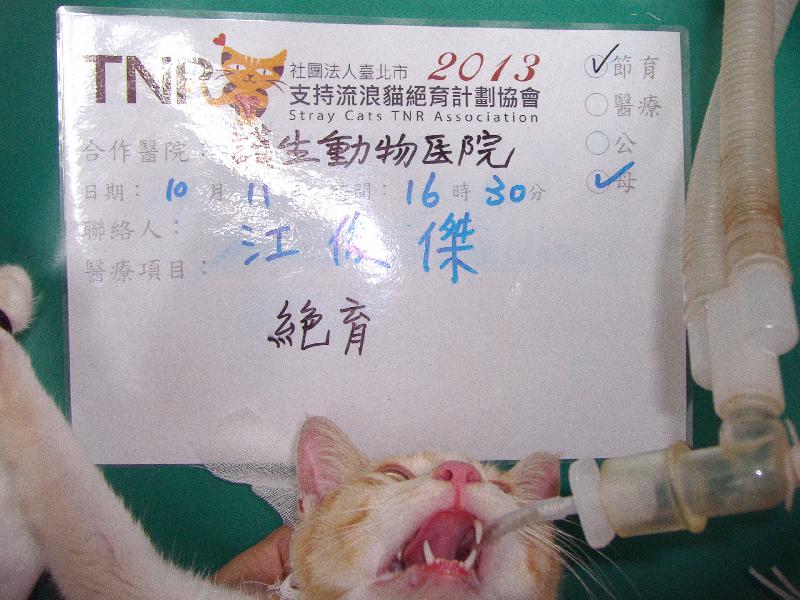 TNR 社團法人臺北市 2013
支持流浪貓絕育計劃協會
Stray Cats TNR Association
節育
醫療
公
母
合作醫院： 生動物医院
日期： 10 月 11 時間： 16 時 30 分
聯絡人： 江俊傑
醫療項目：
絕育